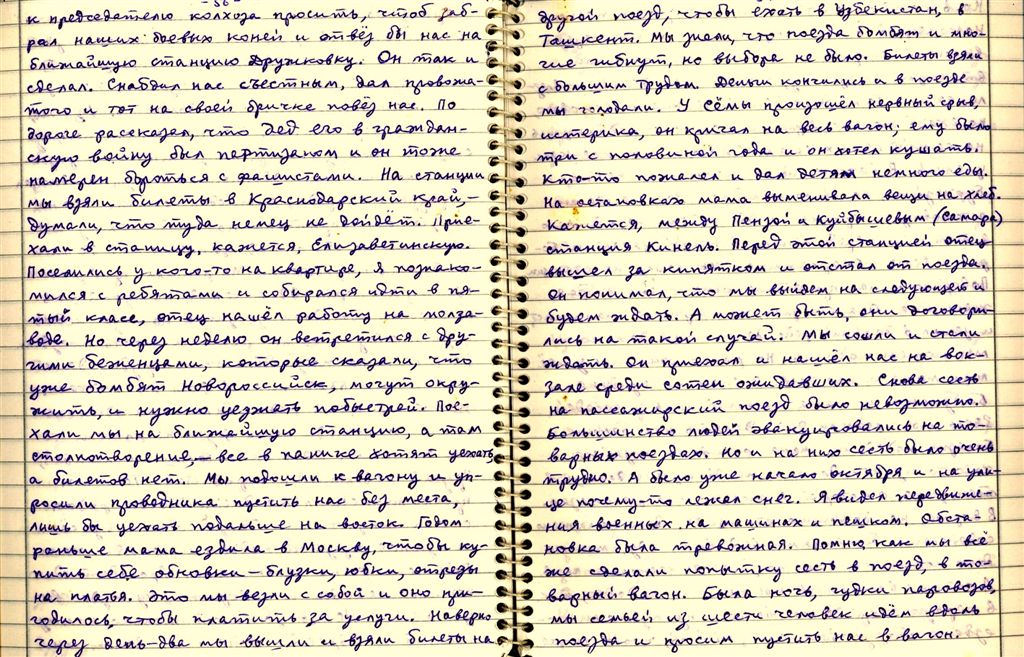 -56-
к председателю колхоза просить, чтоб заб-
рал наших боевых коней и отвёз бы нас на
ближайшую станцию Дружковку. Он так и
сделал. Снабдил нас съестным, дал провожа-
того и тот на своей бричке повёз нас. По
дороге рассказал, что дед его в граждан-
скую войну был партизаном и он тоже
намерен бороться с фашистами. На станции
мы взяли билеты в Краснодарский край,-
думали, что туда немец не дойдёт. Прие-
хали в станицу, кажется, Елизаветинскую.
Поселились у кого-то на квартире, я познако-
мился с ребятами и собирался идти в пя-
тый класс, отец нашёл работу на
воде. Но через неделю он встретился с дру-
гими беженцами, которые сказали, что
уже бомбят Новороссийск, могут окру-
жить, и нужно уезжать побыстрей. Пое-
хали мы на ближайшую станцию, а там
столпотворение,- все в панике хотят уехать,
а билетов нет. Мы подошли к вагону и уп-
росили проводника пустить нас без места,
лишь бы уехать подальше на восток. Годом
раньше мама ездила в Москву, чтобы ку-
пить себе обновки – блузки, юбки, отрезы
на платья. Это мы везли с собой и оно при-
годилось, чтобы платить за услуги. Наверно
через день-два мы вышли и взяли билеты на
другой поезд, чтобы ехать в Узбекистан, в
Ташкент. Мы знали, что поезда бомбят и мно-
гие гибнут, но выбора не было. Билеты взяли
с большим трудом. Деньги кончились и в поезде
мы голодали. У Сёмы произошёл нервный срыв,
истерика, он кричал на весь вагон; ему было
три с половиной года и он хотел кушать.
Кто-то пожалел и дал детям немного еды.
На остановках мама выменивала вещи на хлеб.
Кажется, между Пензой и Куйбышевым (Самара)
станция Кинель. Перед этой станцией отец
вышел за кипятком и отстал от поезда.
Он понимал, что мы выйдем на следующей и
будем ждать. А может быть, они договори-
лись на такой случай. Мы сошли и стали
ждать. Он приехал и нашёл нас на вок-
зале среди сотен ожидавших. Снова сесть
на пассажирский поезд было невозможно.
Большинство людей эвакуировались на то-
варных поездах. Но и на них сесть было очень
трудно. А было уже начало октября и на ули-
це почему-то лежал снег. Я видел передвиже-
ния военных на машинах и пешком. Обста-
новка была тревожная. Помню, как мы всё
же сделали попытку сесть в поезд, в то-
варный вагон. Была ночь, гудки паровозов,
мы семьёй из шести человек идём вдоль
поезда и просим пустить нас в вагон.